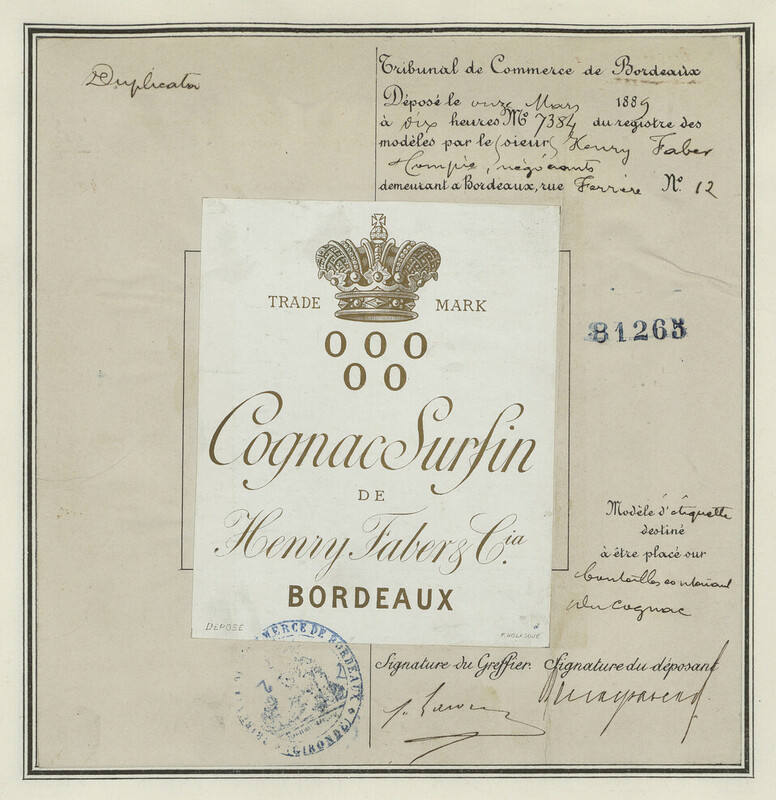 Duplicata
Tribunal de Commerce de Bordeaux
Déposé le onze Mars 1889
à dix heures Mº 7384 du registre des
modèles par le (sieur) Henry Faber
Compie, négociants
demeurant à Bordeaux, rue Ferrère Nº 12
TRADE MARK
000
00
81265
Cognac Surfin
DE
Henry Faber & Cia
BORDEAUX
DÉPOSÉ
Modèle d'étiquette
destiné
à être placé sur
bouteilles contenant
du Cognac
MERCE DE BORDEAUX
(GIRONDE)
Signature du Greffier. Signature du déposant